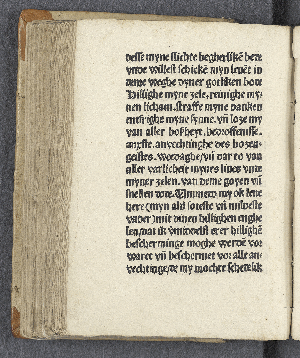 desse myne slichte begherlikē bede
vnde willest schickē myn leuēt in
deme weghe dyner gotliken bode
Hillighe myne zele, reinighe my
nen licham, straffe myne danken
entfrighe myne synne, vñ loze my
van aller boßheyt, bedroffenisse.
angste, anvechtinghe des bozen
geistes. Werdaghe, vñ dar to van
aller varlicheit mynes liues vnde
myner zelen. van deme gayen vñ
snellen dode. Vnmerd my ok leue
here (myn ald soteste vñ mildeste
vader) mit dinen hillighen enghe
len, dat ik vmiddelst erer hillighē
bescherminge moghe werdē vor
waret vñ beschermet vor alle an
vechtinge, de my mochte schedelik